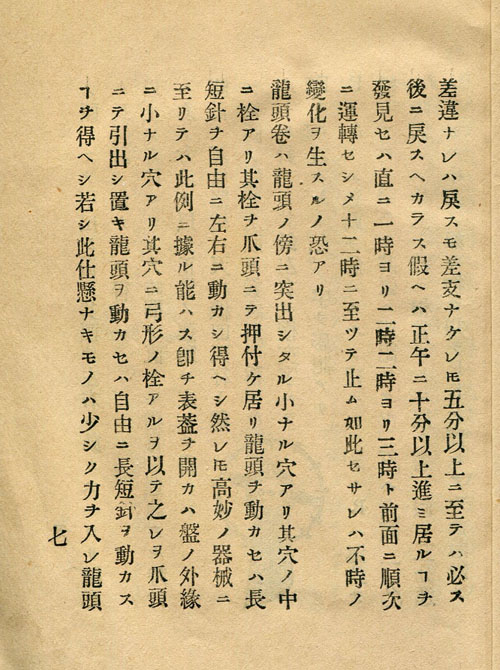 差違ナレハ戻スモ差支ナケレ𪜈五分以上ニ至テハ必ス
後ニ戻スヘカラス假ヘハ正午ニ十分以上進ミ居ルヿヲ
發見セハ直ニ一時ヨリ二時二時ヨリ三時ト前面ニ順次
ニ運轉セシメ十二時ニ至ツテ止ム如此セサレハ不時ノ
變化ヲ生スルノ恐アリ
龍頭卷ハ龍頭ノ傍ニ突出シタル小ナル穴アリ其穴ノ中
ニ栓アリ其栓ヲ爪頭ニテ押付ケ居リ龍頭ヲ動カセハ長
短針ヲ自由ニ左右ニ動カシ得ヘシ然レ𪜈高妙ノ器械ニ
至リテハ此例ニ據ル能ハス卽チ表葢ヲ開カハ盤ノ外緣
ニ小ナル穴アリ其穴ニ弓形ノ栓アルヲ以テ之レヲ爪頭
ニテ引出シ置キ龍頭ヲ動カセハ自由ニ長短針ヲ動カス
ヿヲ得ヘシ若シ此仕懸ナキモノハ少シク力ヲ入レ龍頭
七